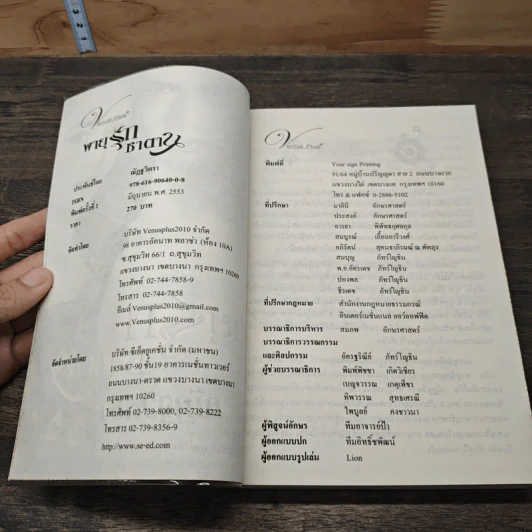 พายุรัก
ซาตาน
ประพันธ์โดย ณัฏฐวิตรา
ISBN 978-616-90640-0-8
พิมพ์ครั้งที่ 1 มิถุนายน พ.ศ. 2553
ราคา 270 บาท
จัดทำโดย บริษัท Venusplus2010 จำกัด
98 อาคารอัคมาท พลาซ่า (ห้อง 10A)
ซ.สุขุมวิท 66/1 ถ.สุขุมวิท
แขวงบางนา เขตบางนา กรุงเทพฯ 10260
โทรศัพท์ 02-744-7858-9
โทรสาร 02-744-7858
อีเมล์ Venusplus2010@gmail.com
www.Venusplus2010.com
จัดจำหน่ายโดย บริษัท ซีเอ็ดยูเคชั่น จำกัด (มหาชน)
1858/87-90 ชั้น19 อาคารเนชั่นทาวเวอร์
ถนนบางนา-ตราด แขวงบางนา เขตบางนา
กรุงเทพฯ 10260
โทรศัพท์ 02-739-8000, 02-739-8222
โทรสาร 02-739-8356-9
http://www.se-ed.com
พิมพ์ที่ Your sign Printing
91/64 หมู่บ้านปริญญดา สาย 2 ถนนบางแวก
แขวงบางไผ่ เขตบางแค กรุงเทพฯ 10160
โทร & แฟกซ์ 0-2886-5102
ที่ปรึกษา มาลินี อักษรศาสตร์
ประสงค์ อักษรศาสตร์
อารยา พิพัทธกุศลกุล
สมบูรณ์ เอี่ยมถาวีวงศ์
ที่ปรึกษากฎหมาย สำนักงานกฎหมายธรรมกรณ์
อินเตอร์เนชั่นแนล ลอว์ออฟฟิต
บรรณาธิการบริหาร สมภพ อักษรศาสตร์
บรรณาธิการวรรณกรรม
และศิลปกรรม อัครฐวิณีย์ ภัทร์ไญชิน
ผู้ช่วยบรรณาธิการ พิมพ์พิชชา เกิดวิเชียร
เบญจวรรณ เกตุเพ็ชร
ทิพวรรณ สุทธเศรณี
ไพบูลย์ คงชาวนา
ผู้พิสูจน์อักษร ทีมอาจารย์ป้า
ผู้ออกแบบปก ทีมอิทธิ์ชพัฒน์
ผู้ออกแบบรูปเล่ม Lion